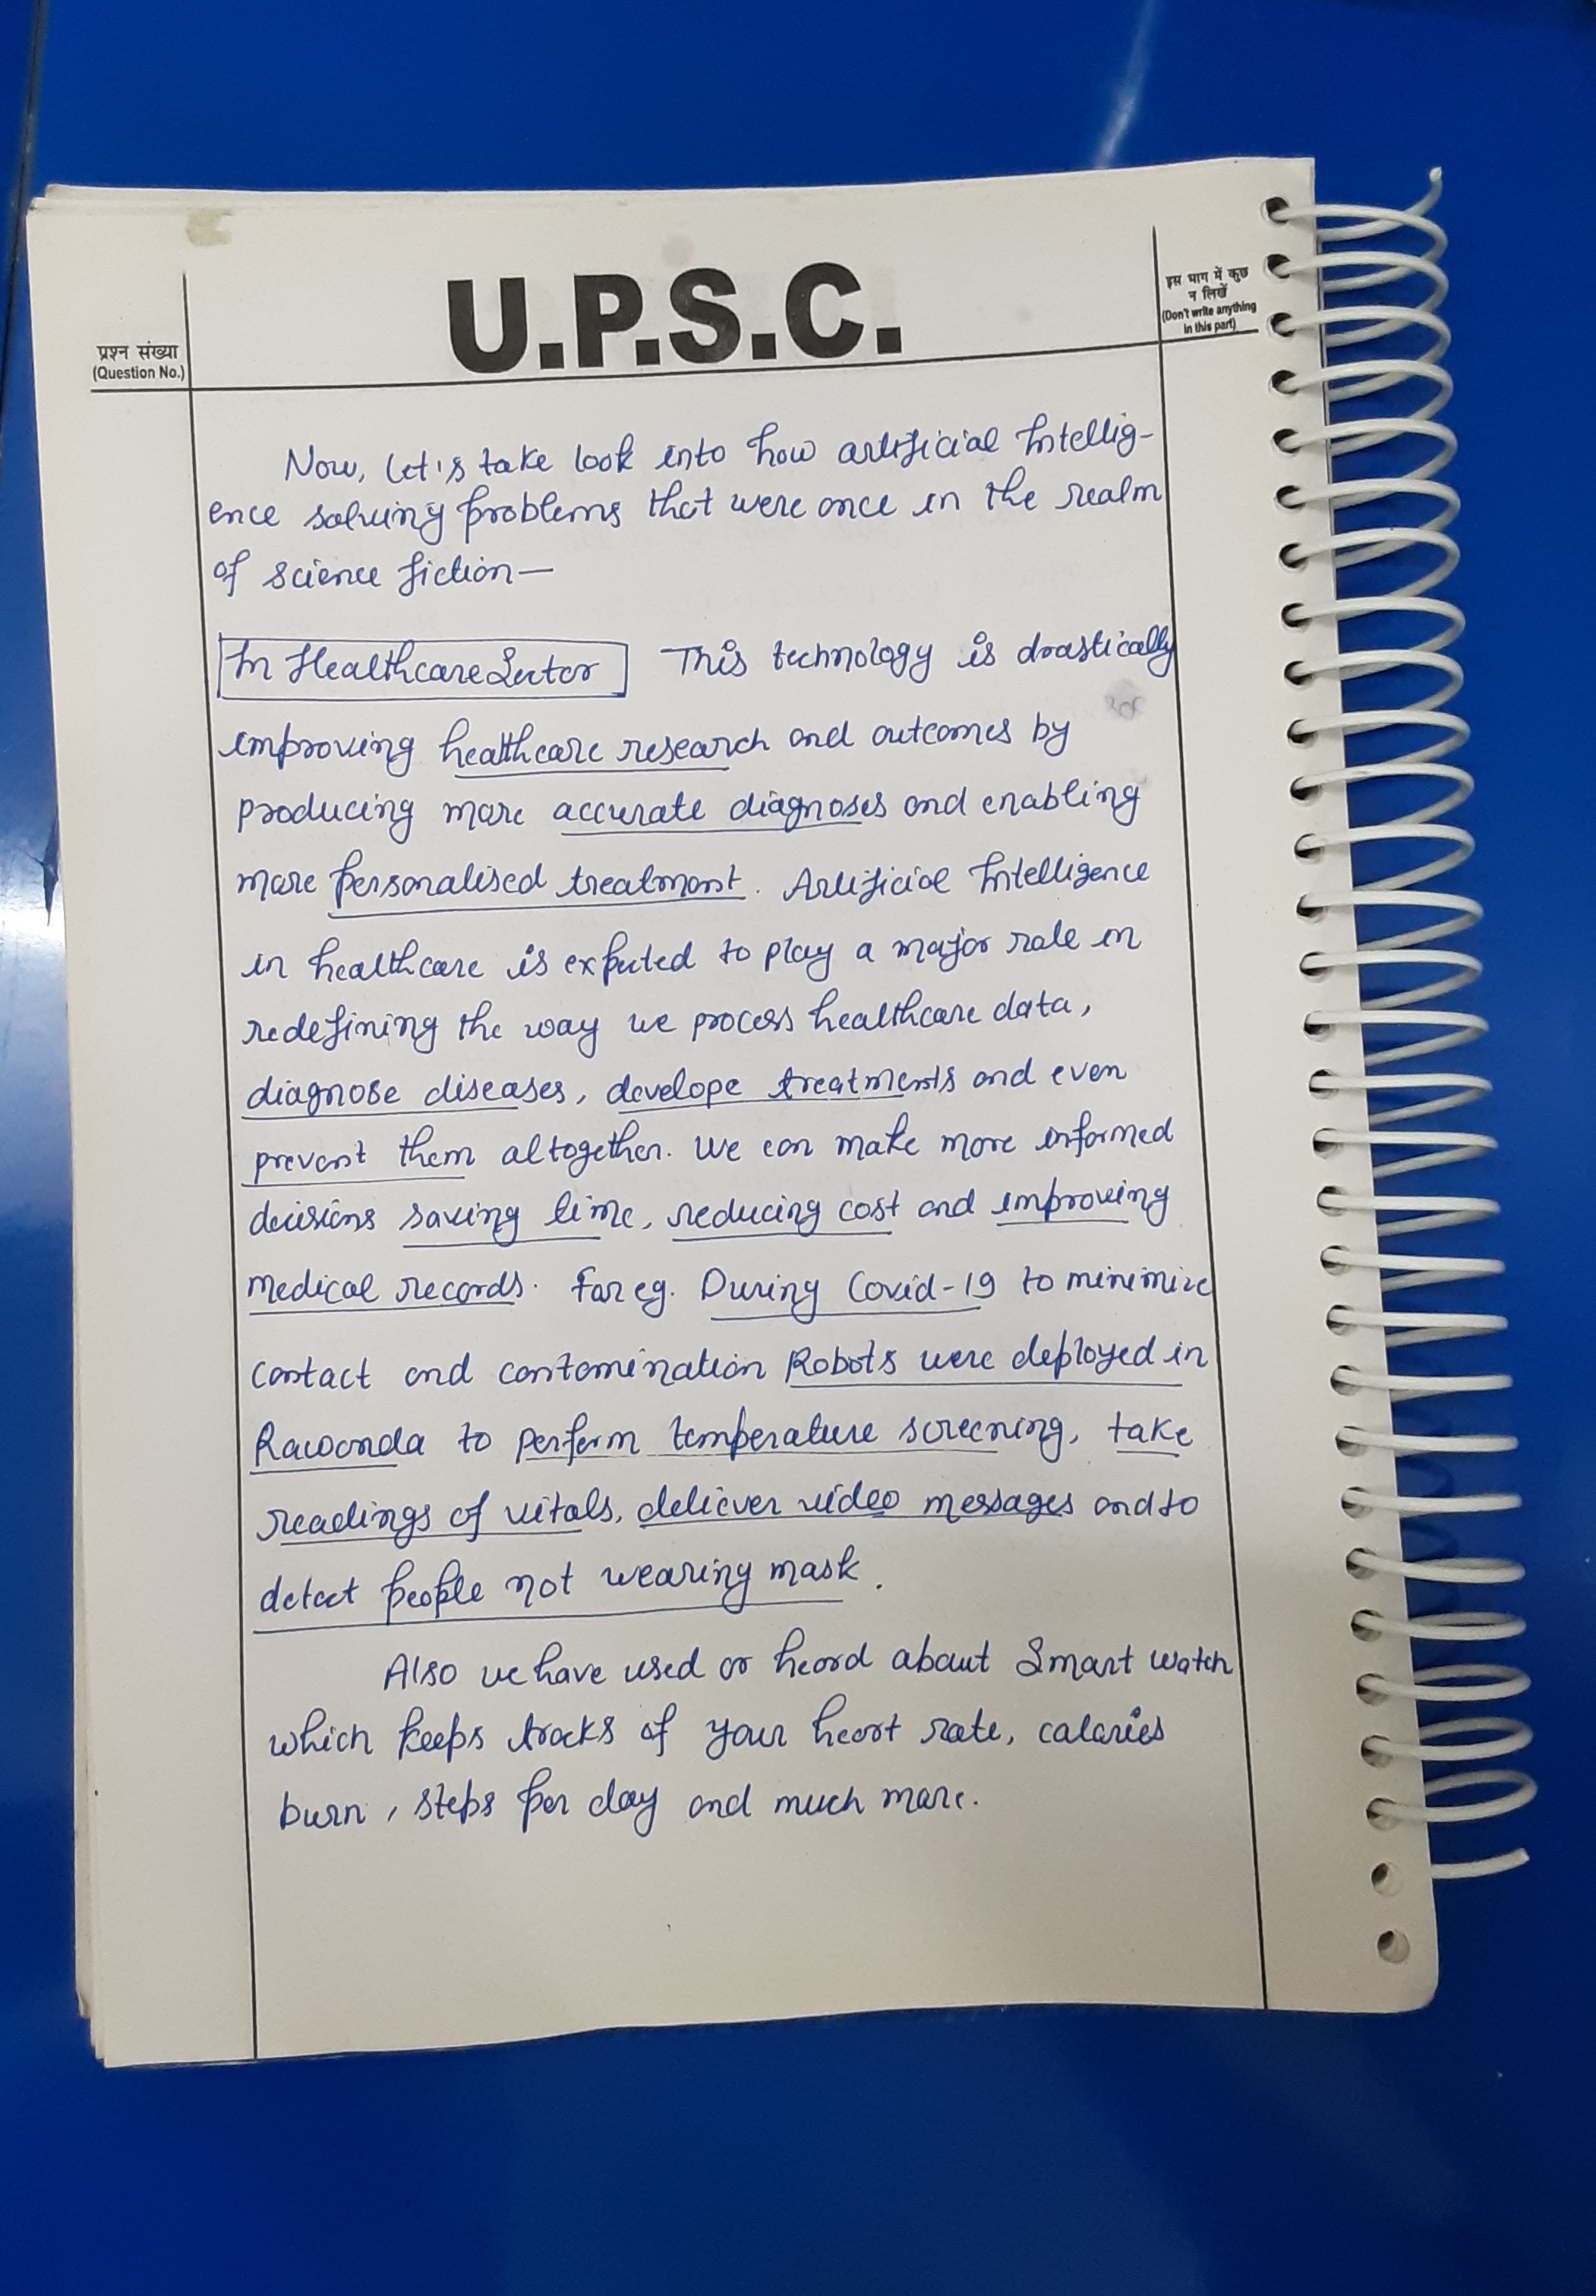 U.P.S.C.
प्रश्न संख्या
(Question No.)
इस भाग में कुछ
न लिखें
(Don't write anything
in this part)
Now, let's take look into how artificial Intellig-
ence solving problems that were once in the realm
of science fiction—
In Healthcare Sector This technology is drastically
improving healthcare research and outcomes by
producing more accurate diagnoses and enabling
more personalised treatment. Artificial Intelligence
in healthcare is expected to play a major role in
redefining the way we process healthcare data,
diagnose diseases, develope treatments and even
prevent them altogether. We can make more informed
decisions saving time, reducing cost and improving
medical records. For eg. During Covid-19 to minimize
contact and contamination Robots were deployed in
Rawanda to perform temperature screening, take
readings of vitals, deliever video messages and to
detect people not wearing mask.
Also we have used or heard about Smart watch
which keeps tracks of your heart rate, calories
burn, steps per day and much more.